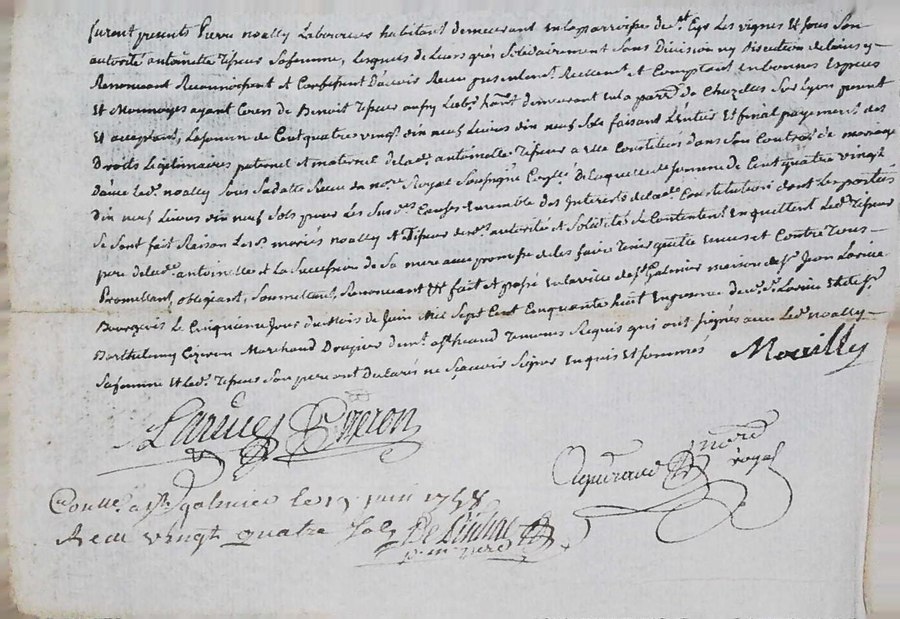 furent presents Pierre noally Laboureur habitant demeurant en la parroisse de St Cyr Les vignes Et sous son
autorité antoinette Tisseur sa femme, Lesquels de Leurs grés solidairement sans Division ny discution de biens y
Renonceant Reconnoissent et Confessent D'avoir Reçu presentement Reellement et Comptant en bonnes Especes
et Monnoyes ayant Cours de Benoit Tisseur aussy Labr habt demeurant en la parrse de Chazelles sur Lyon present
et acceptant, La somme de Cent quatre vingt dix neuf Livres dix neuf sols faisant L'entier Et final payement des
Droits Legitimaires paternel et maternel de lade antoinette Tisseur a elle Constitués dans son Contrat de mariage
avec led. noally sous sa datte Reçu du nore Royal soussigné De laquelle de somme de Cent quatre vingt
dix neuf Livres dix neuf sols pour Les Causes Ensemble des Interets de lade Constitution dont les parties
se sont fait Raison Les mariés noally et Tisseur autorité et solidité se Contentent En quittent Led. Tisseur
pere de lade antoinette et la succession de sa mere avec promesse de les faire tenir quitte Envers et Contre tous
Promettant, obligeant, soumettant, Renonceant &c fait et passé en la ville de St Galmier maison de Sr Jean Larüe
Bourgeois Le Cinquieme jour du Mois de Juin Mil sept Cent Cinquante huit En presence de Sr Larüe Et de Sr
Barthelemy Cizeron Marchand St heand Temoins Requis qui ont signés avec Led. noally
sa femme et led. Tisseur son pere ont declarés ne sçavoir signer Enquis Et sommés
Noailly
Larüe
Cizeron
nore
royal
Conlle a St galmier le 13 juin 1758
Reçu vingt quatre sols